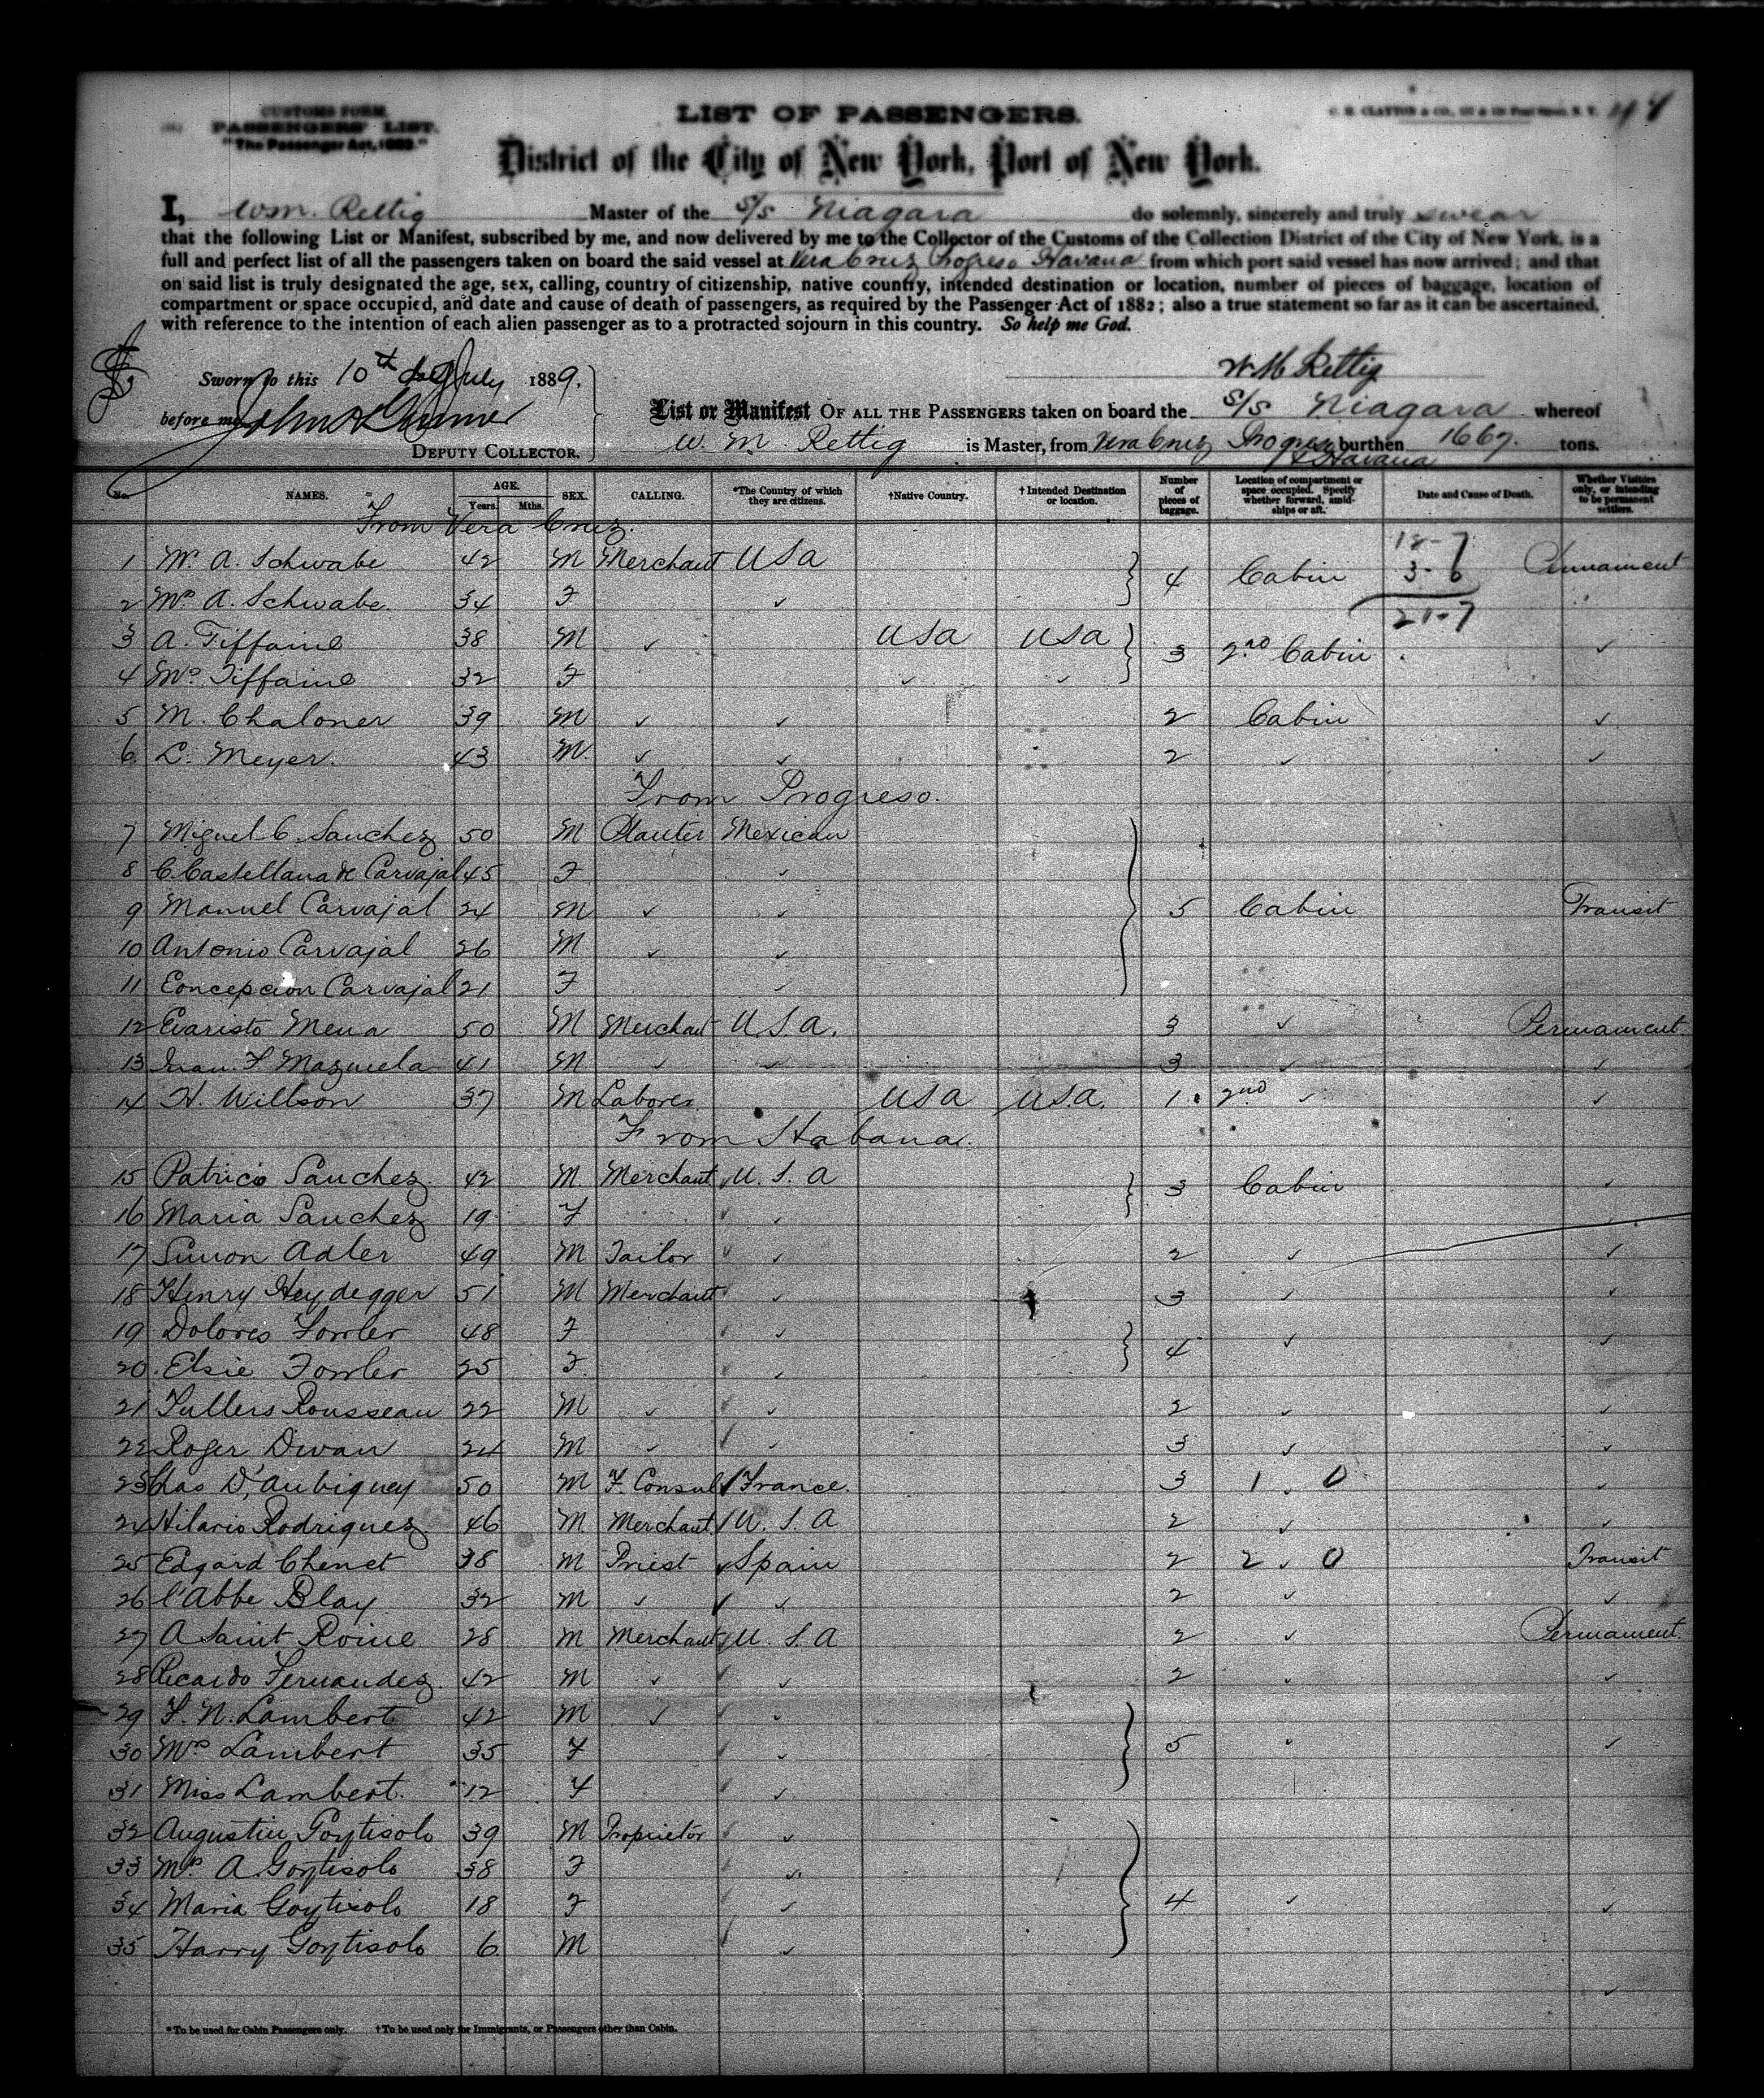 CUSTOMS FORM.
PASSENGERS' LIST.
"The Passenger Act, 1882."
LIST OF PASSENGERS.
C. H. CLAYTON & CO., Pearl Street, N. Y.
District of the City of New York, Port of New York.
I, Wm. Rettig Master of the S/S Niagara do solemnly, sincerely and truly swear
that the following List or Manifest, subscribed by me, and now delivered by me to the Collector of the Customs of the Collection District of the City of New York, is a
full and perfect list of all the passengers taken on board the said vessel at Vera Cruz Progreso Havana from which port said vessel has now arrived; and that
on said list is truly designated the age, sex, calling, country of citizenship, native country, intended destination or location, number of pieces of baggage, location of
compartment or space occupied, and date and cause of death of passengers, as required by the Passenger Act of 1882; also a true statement so far as it can be ascertained,
with reference to the intention of each alien passenger as to a protracted sojourn in this country. So help me God.
Sworn to this 10th July 1889.
W. M. Rettig
before me
DEPUTY COLLECTOR.
List or Manifest OF ALL THE PASSENGERS taken on board the S/S Niagara whereof
W. M. Rettig is Master, from Vera Cruz Progreso & Havana burthen 1667. tons.
No. NAMES. AGE. Years. Mths. SEX. CALLING. *The Country of which they are citizens. †Native Country. †Intended Destination or location. Number of pieces of baggage. Location of compartment or space occupied. Specify whether forward, amidships or aft. Date and Cause of Death. Whether Visitors only, or intending to be permanent settlers.
From Vera Cruz.
18-7
3-6
21-7
1 W. A. Schwabe 42 M Merchant USA 4 Cabin Permament
2 Mrs A. Schwabe. 34 F ✓
3 A. Tiffaine 38 M ✓ USA USA 3 2nd Cabin ✓
4 Mrs Tiffaine 32 F ✓ ✓
5 M. Chaloner 39 M ✓ ✓ 2 Cabin ✓
6 L. Meyer. 43 M. ✓ ✓ 2 ✓ ✓
From Progreso.
7 Miguel C. Sanchez 50 M Planter Mexican
8 C. Castellana de Carvajal 45 F ✓
9 Manuel Carvajal 24 M ✓ ✓ 5 Cabin Transit
10 Antonio Carvajal 26 M ✓ ✓
11 Concepcion Carvajal 21 F ✓
12 Evaristo Mena 50 M Merchant U.S.A. 3 ✓ Permament
13 Juan. F Mazuela 41 M ✓ ✓ 3 ✓ ✓
14 H. Willson 37 M Laborer USA USA. 1 2nd ✓ ✓
From Habana.
15 Patricio Sanchez. 42 M. Merchant U. S. A 3 Cabin ✓
16 Maria Sanchez 19 F ✓
17 Simon Adler 49 M Tailor ✓ 2 ✓ ✓
18 Henry Heydegger 51 M Merchant ✓ 3 ✓ ✓
19 Dolores Fowler 48 F ✓ 4 ✓ ✓
20. Elsie Fowler 25 F. ✓
21 Tullers Rousseau 22 M ✓ ✓ 2 ✓ ✓
22 Roger Divan 24 M ✓ ✓ 3 ✓ ✓
23 Chas D'Aubigney 50 M F. Consul France. 3 1. 0 ✓
24 Hilario Rodriguez 46 M Merchant U. S. A 2 ✓ ✓
25 Edgard Chenet 38 M Priest Spain 2 2. 0 Transit
26 l'Abbe Blay 32 M ✓ ✓ 2 ✓ ✓
27 A Saint Roine 28 M Merchant U. S. A 2 ✓ Permament.
28 Ricardo Fernandez. 42 M ✓ ✓ 2 ✓ ✓
29 F. N. Lambert 42 M ✓ ✓
30 Mrs Lambert 35 F ✓ 5 ✓
31 Miss Lambert. 12 F ✓
32 Augustin Goytisolo 39 M Proprietor ✓
33 Mrs A. Goytisolo 38 F ✓
34 Maria Goytisolo 18 F ✓ 4 ✓ ✓
35 Harry Goytisolo 6 M ✓
*To be used for Cabin Passengers only. †To be used only for Immigrants, or Passengers other than Cabin.